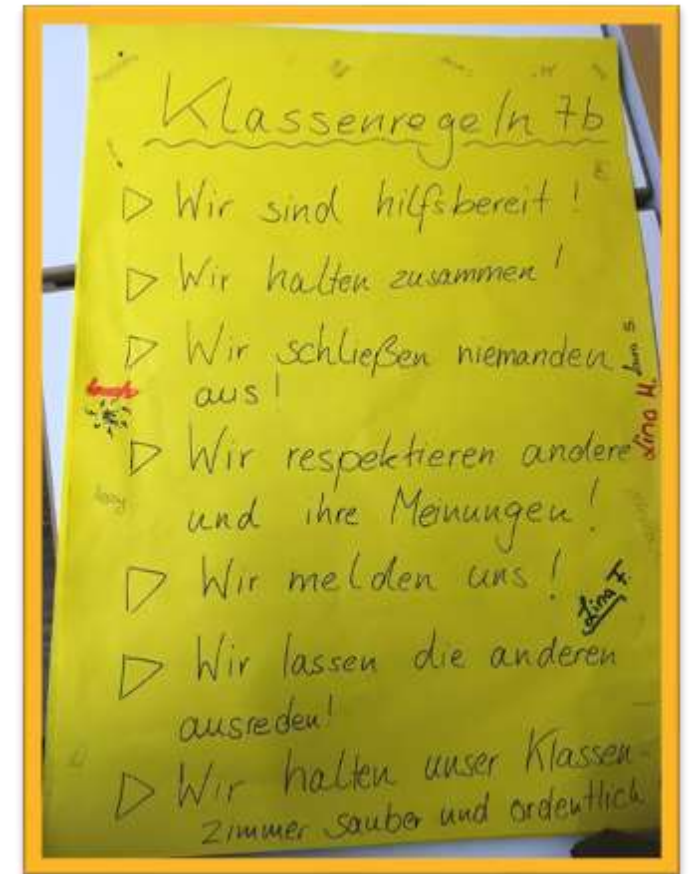 Klassenregeln 7b
▷ Wir sind hilfsbereit!
▷ Wir halten zusammen!
▷ Wir schließen niemanden
aus!
▷ Wir respektieren andere
und ihre Meinungen!
▷ Wir melden uns!
▷ Wir lassen die anderen
ausreden!
▷ Wir halten unser Klassen-
zimmer sauber und ordentlich!
Lina H.
Lina F.